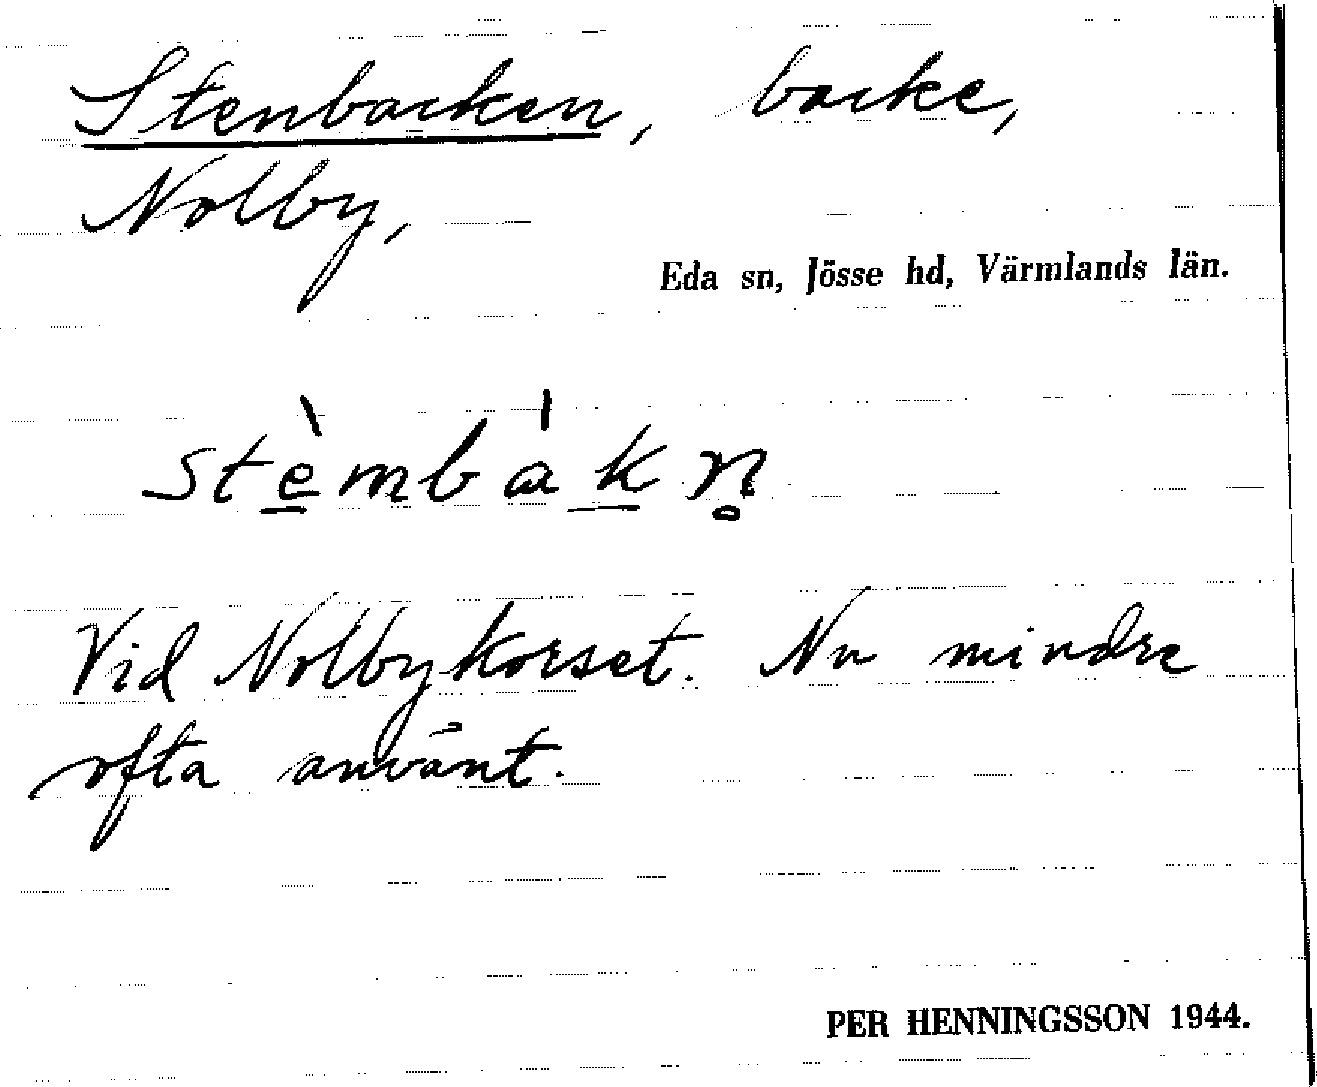 Stenbacken, backe,
Nolby,
Eda sn, Jösse hd, Värmlands län.
stè̱mbá̱kn̥
Vid Nolbykorset. Nu mindre
ofta använt.
PER HENNINGSSON 1944.